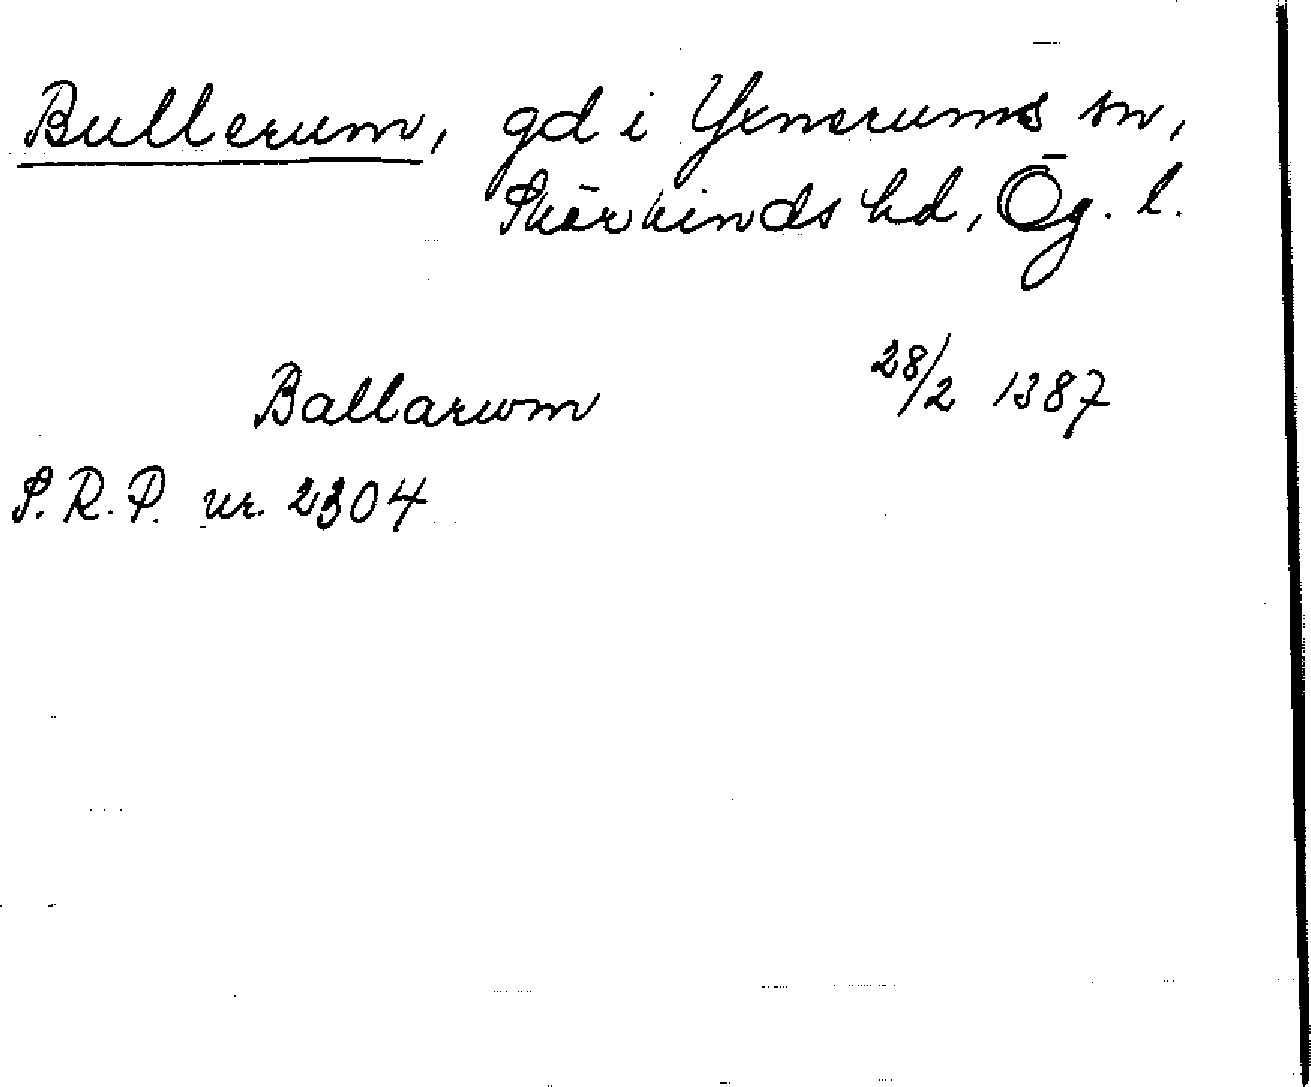 Bullerum, gd i Yxnerums sn,
Skärkinds hd, Ög. l.
Ballarum 28/2 1387
S.R.P. nr. 2304